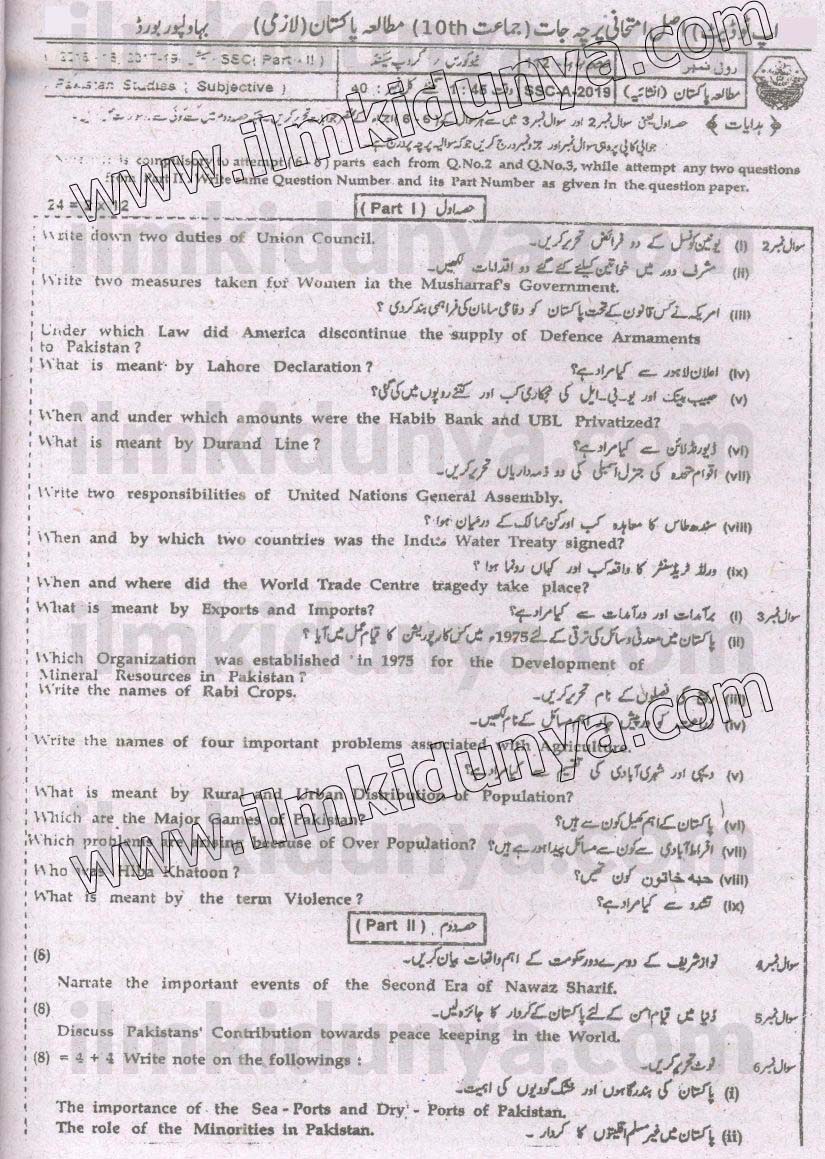 اپ ٹو ڈیٹ اصلی امتحانی پرچہ جات (جماعت 10th) مطالعہ پاکستان (لازمی) بہاولپور بورڈ
رول نمبر SSC (Part - II)
مطالعہ پاکستان (انشائیہ) SSC-A-2019 وقت 1:45 گھنٹے 40 Pakistan Studies (Subjective)
﴿ ہدایات ﴾ حصہ اول یعنی سوال نمبر 2 اور سوال نمبر 3 میں سے ہر سوال کے (6 - 6)
جوابی کاپی پر وہی سوال نمبر اور جزو نمبر درج کریں جو کہ سوالیہ پرچہ پر درج ہے۔
is compulsory to attempt (6 - 6) parts each from Q.No.2 and Q.No.3, while attempt any two questions
from Part II. Write same Question Number and its Part Number as given in the question paper.
24 = 2 x 12 (Part I) حصہ اول
Write down two duties of Union Council. سوال نمبر 2 (i) یونین کونسل کے دو فرائض تحریر کریں۔
(ii) مشرف دور میں خواتین کیلئے کئے گئے دو اقدامات لکھیں۔
Write two measures taken for Women in the Musharraf's Government.
(iii) امریکہ نے کس قانون کے تحت پاکستان کو دفاعی سامان کی فراہمی بند کر دی ؟
Under which Law did America discontinue the supply of Defence Armaments
to Pakistan ?
What is meant by Lahore Declaration ? (iv) اعلان لاہور سے کیا مراد ہے؟
(v) حبیب بینک اور یو۔بی۔ایل کی نجکاری کب اور کتنے روپوں میں کی گئی؟
When and under which amounts were the Habib Bank and UBL Privatized?
What is meant by Durand Line ? (vi) ڈیورنڈ لائن سے کیا مراد ہے؟
(vii) اقوام متحدہ کی جنرل اسمبلی کی دو ذمہ داریاں تحریر کریں۔
Write two responsibilities of United Nations General Assembly.
(viii) سندھ طاس کا معاہدہ کب اور کن ممالک کے درمیان ہوا ؟
When and by which two countries was the Indus Water Treaty signed?
(ix) ورلڈ ٹریڈ سنٹر کا واقعہ کب اور کہاں رونما ہوا ؟
When and where did the World Trade Centre tragedy take place?
What is meant by Exports and Imports? سوال نمبر 3 (i) برآمدات اور درآمدات سے کیا مراد ہے؟
(ii) پاکستان میں معدنی وسائل کی ترقی کے لئے 1975ء میں کس کارپوریشن کا قیام عمل میں آیا ؟
Which Organization was established in 1975 for the Development of
Mineral Resources in Pakistan ?
Write the names of Rabi Crops. (iii) ربیع کی فصلوں کے نام تحریر کریں۔
(iv) زراعت کو درپیش چار اہم مسائل کے نام لکھیں۔
Write the names of four important problems associated with Agriculture.
(v) دیہی اور شہری آبادی کی تقسیم سے کیا مراد ہے؟
What is meant by Rural and Urban Distribution of Population?
Which are the Major Games of Pakistan? (vi) پاکستان کے اہم کھیل کون سے ہیں؟
Which problems are arising because of Over Population? (vii) افراط آبادی سے کون سے مسائل پیدا ہو رہے ہیں؟
Who was Hiba Khatoon ? (viii) حبہ خاتون کون تھیں؟
What is meant by the term Violence ? (ix) تشدد سے کیا مراد ہے؟
(Part II) حصہ دوم
(8) سوال نمبر 4 نواز شریف کے دوسرے دور حکومت کے اہم واقعات بیان کریں۔
Narrate the important events of the Second Era of Nawaz Sharif.
(8) سوال نمبر 5 دُنیا میں قیام امن کے لئے پاکستان کے کردار کا جائزہ لیں۔
Discuss Pakistans' Contribution towards peace keeping in the World.
(8) = 4 + 4 Write note on the followings : سوال نمبر 6 نوٹ تحریر کریں۔
(i) پاکستان کی بندرگاہوں اور خشک گودیوں کی اہمیت۔
The importance of the Sea - Ports and Dry - Ports of Pakistan.
The role of the Minorities in Pakistan. (ii) پاکستان میں غیر مسلم اقلیتوں کا کردار ۔
www.ilmkidunya.com
www.ilmkidunya.com
ilmkidunya.com
ilmkidunya.com
ilmkidunya.com
ilmkidunya.com
ilmkidunya.com